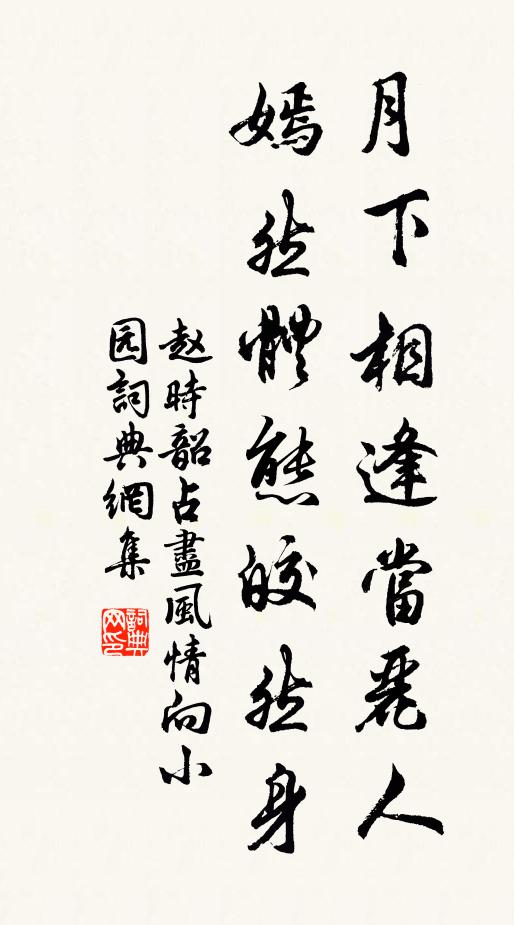 月下相逢當麗人
嫣然體態皎然身
赵時韶占盡風情向小
园詞典網集
詞典
网印